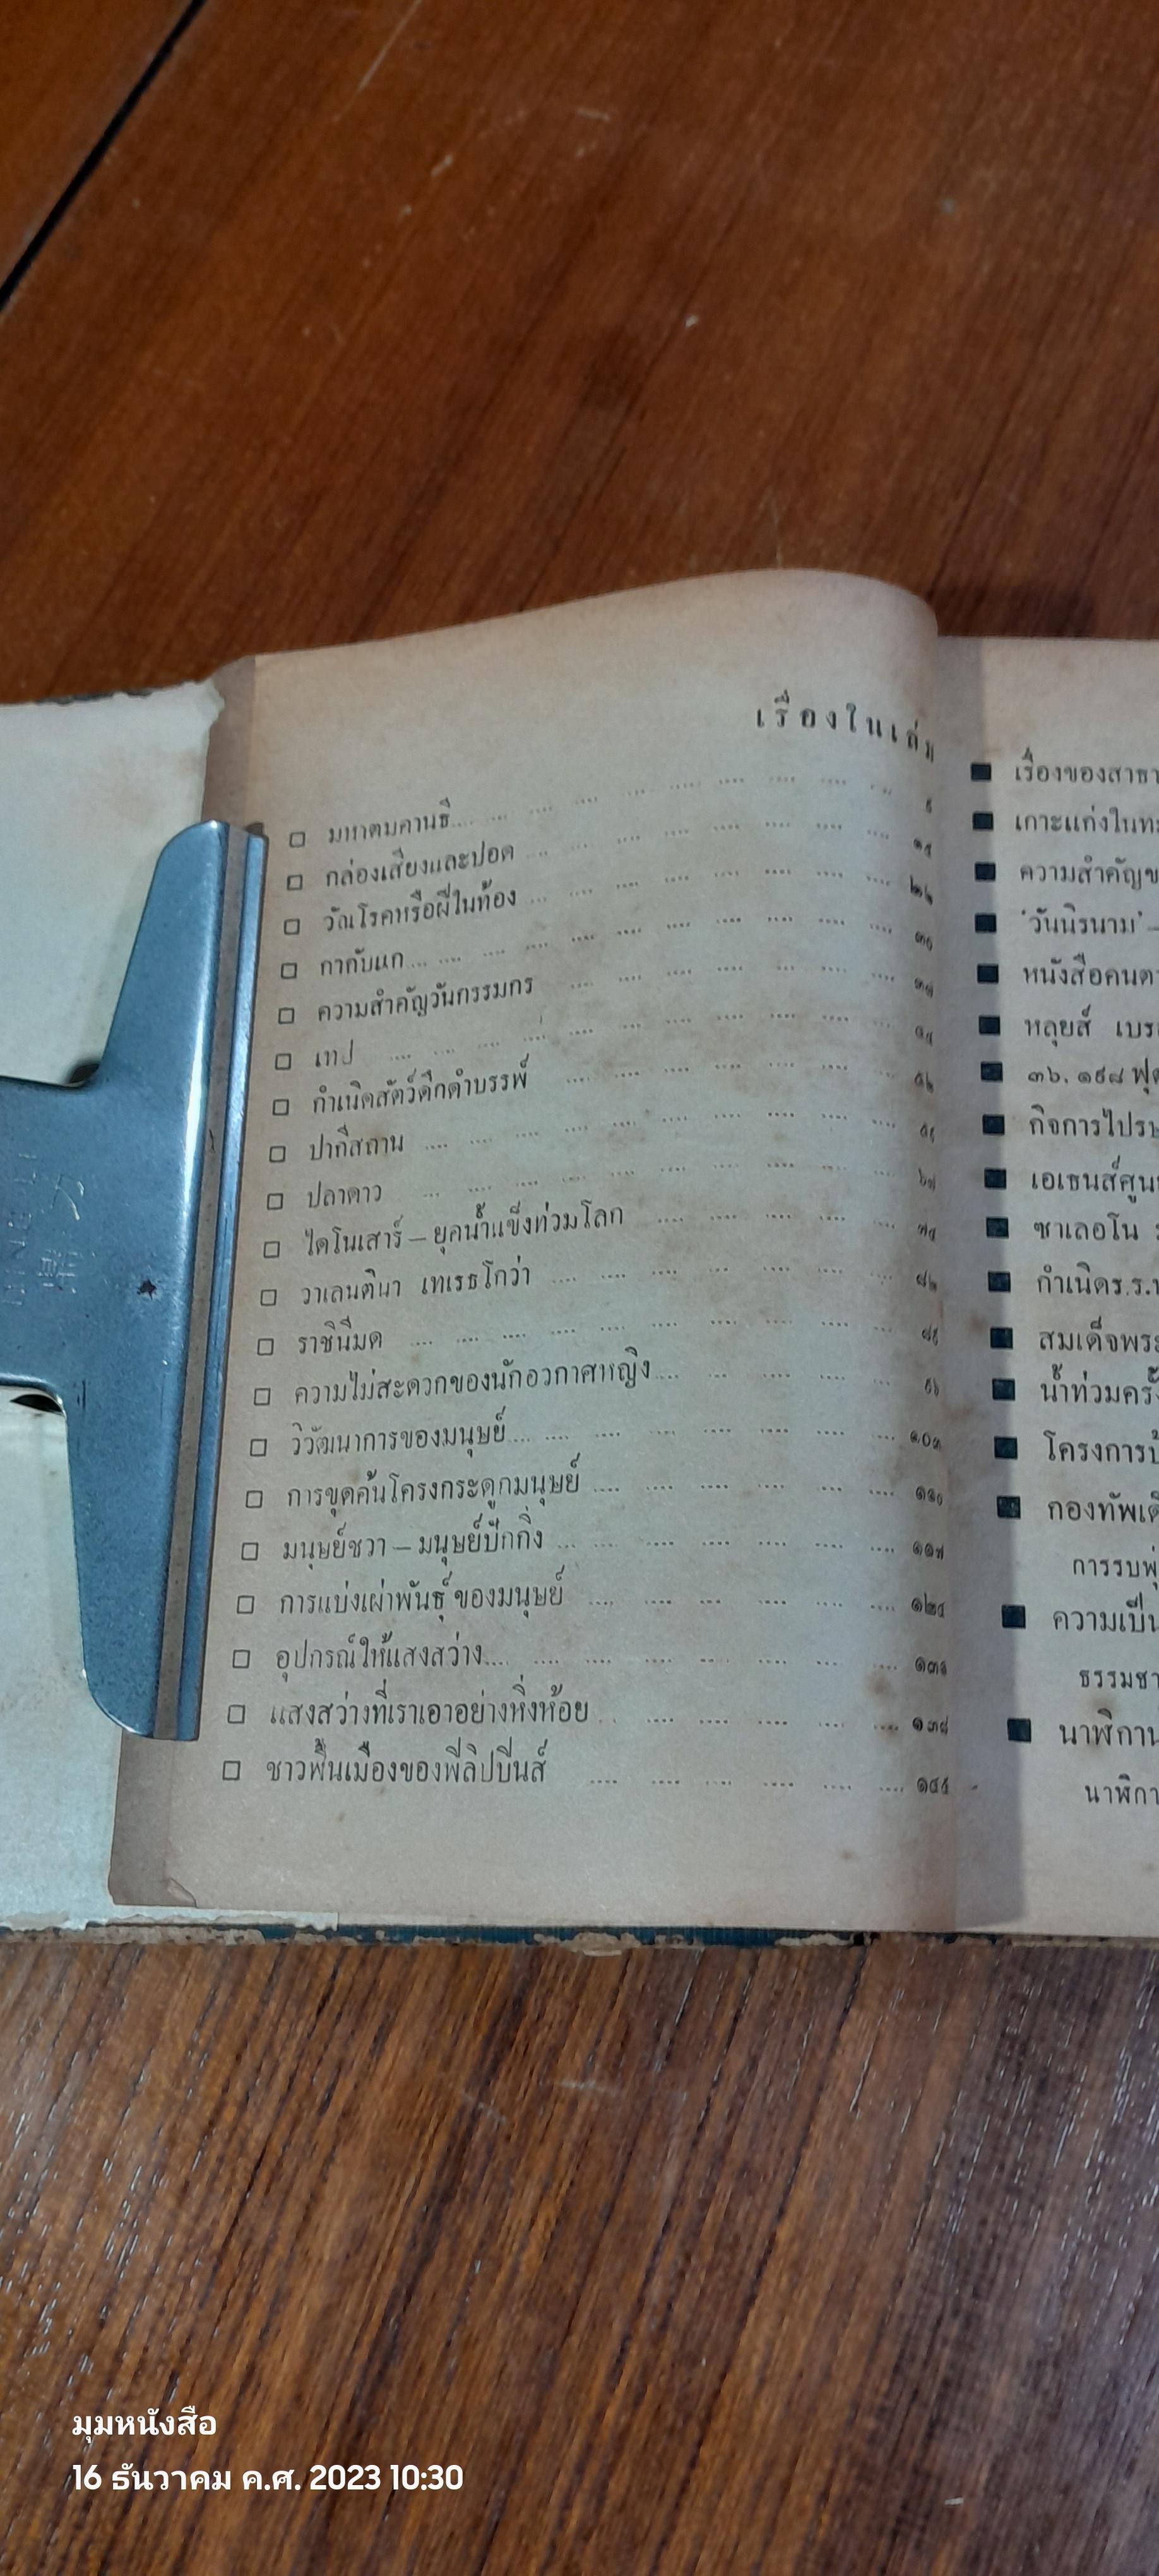 เรื่องในเล่ม
มหาตมคานธี
กล่องเสียงและปอด
วัณโรคหรือผีในท้อง
กากับแก
ความสำคัญวันกรรมกร
เทป
กำเนิดสัตว์ดึกดำบรรพ์
ปากีสถาน
ปลาดาว
ไดโนเสาร์ — ยุคน้ำแข็งท่วมโลก
วาเลนตินา เทเรธโกว่า
ราชินีมด
ความไม่สะดวกของนักอวกาศหญิง
วิวัฒนาการของมนุษย์ ๑๐๓
การขุดค้นโครงกระดูกมนุษย์ ๑๑๐
มนุษย์ชวา — มนุษย์ปักกิ่ง ๑๑๗
การแบ่งเผ่าพันธุ์ของมนุษย์
อุปกรณ์ให้แสงสว่าง
แสงสว่างที่เราเอาอย่างหิ่งห้อย ๑๓๘
ชาวพื้นเมืองของฟิลิปปินส์
เรื่องของสาธา
เกาะแก่งในทะ
ความสำคัญข
'วันนิรนาม' —
หนังสือคนตา
หลุยส์ เบร
๓๖,๑๙๘ ฟุต
กิจการไปรษ
เอเธนส์ศูน
ซาเลอโน
กำเนิดร.ร.
สมเด็จพระ
น้ำท่วมครั้
โครงการป้
กองทัพเต
การรบพุ่
ความเป็น
ธรรมชา
นาฬิกา
นาฬิกา
มุมหนังสือ
16 ธันวาคม ค.ศ. 2023 10:30